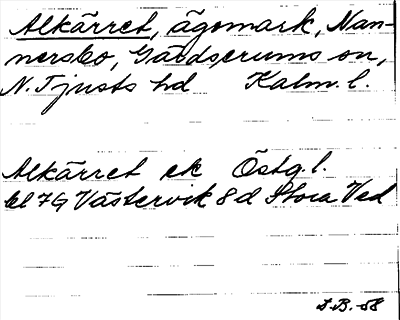 Alkärret, ägomark, Nan-
nersbo, Gärdserums sn,
N. Tjusts hd Kalm. l.
Alkärret ek Östg. l.
bl 7G Västervik 8 d Stora Ved
S.B. -58